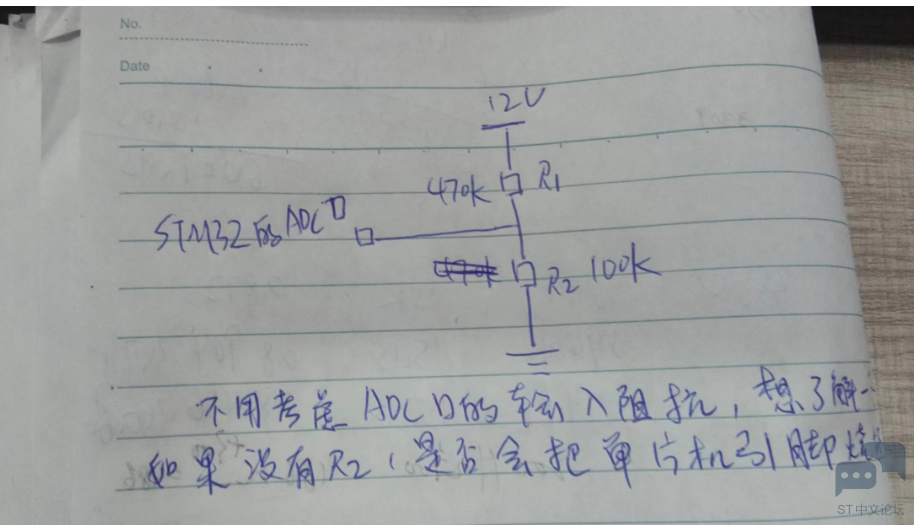 No.
Date
12V
470k R1
STM32的ADC口
R2 100k
不用考虑ADC口的输入阻抗，想了解一
如果没有R2，是否会把单片机引脚烧
ST中文论坛